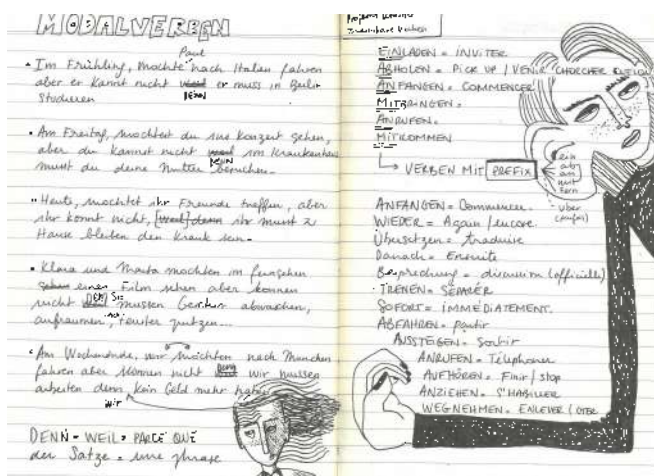 MODALVERBEN
Paul
• Im Frühling, mochte nach Italien fahren
aber er kannt nicht er muss in Berlin
DENN
studieren
• Am Freitag, mochtest du ins Konzert gehen,
aber du kannst nicht im Krankenhaus
DENN
musst du deine Mutter besuchen.
• Heute, mochtet ihr Freunde treffen, aber
ihr konnt nicht, [weil] denn ihr musst z
Hause bleiben den Krank sein.
• Klara und Marta mochten im fernsehen
einen Film sehen aber konnen
nicht DENN Sie mussen abwaschen,
aufraumen, Fenster putzen...
• Am Wochenende, wir mochten nach Munchen
fahren aber konnen nicht DENN wir mussen
arbeiten denn kein Geld mehr haben
wir
DENN = WEIL = PARCE QUE
der Satze = une phrase
EINLADEN = INVITER
ABHOLEN = PICK UP / VENIR CHERCHER
ANFANGEN = COMMENCER
MITBRINGEN =
ANRUFEN =
MITKOMMEN
VERBEN MIT PREFIX
ein
ab
an
mit
fern
über
ANFANGEN = Commencer
WIEDER = Again / encore
Übersetzen = traduire
Danach = Ensuite
Besprechung = discussion (officielle)
TRENEN = SÉPARER
SOFORT = IMMÉDIATEMENT.
ABFAHREN = partir
AUSSTEGEN = Sortir
ANRUFEN = Téléphoner
AUFHÖREN = Finir / stop
ANZIEHEN = S'HABILLER
WEGNEHMEN = ENLEVER / OTER